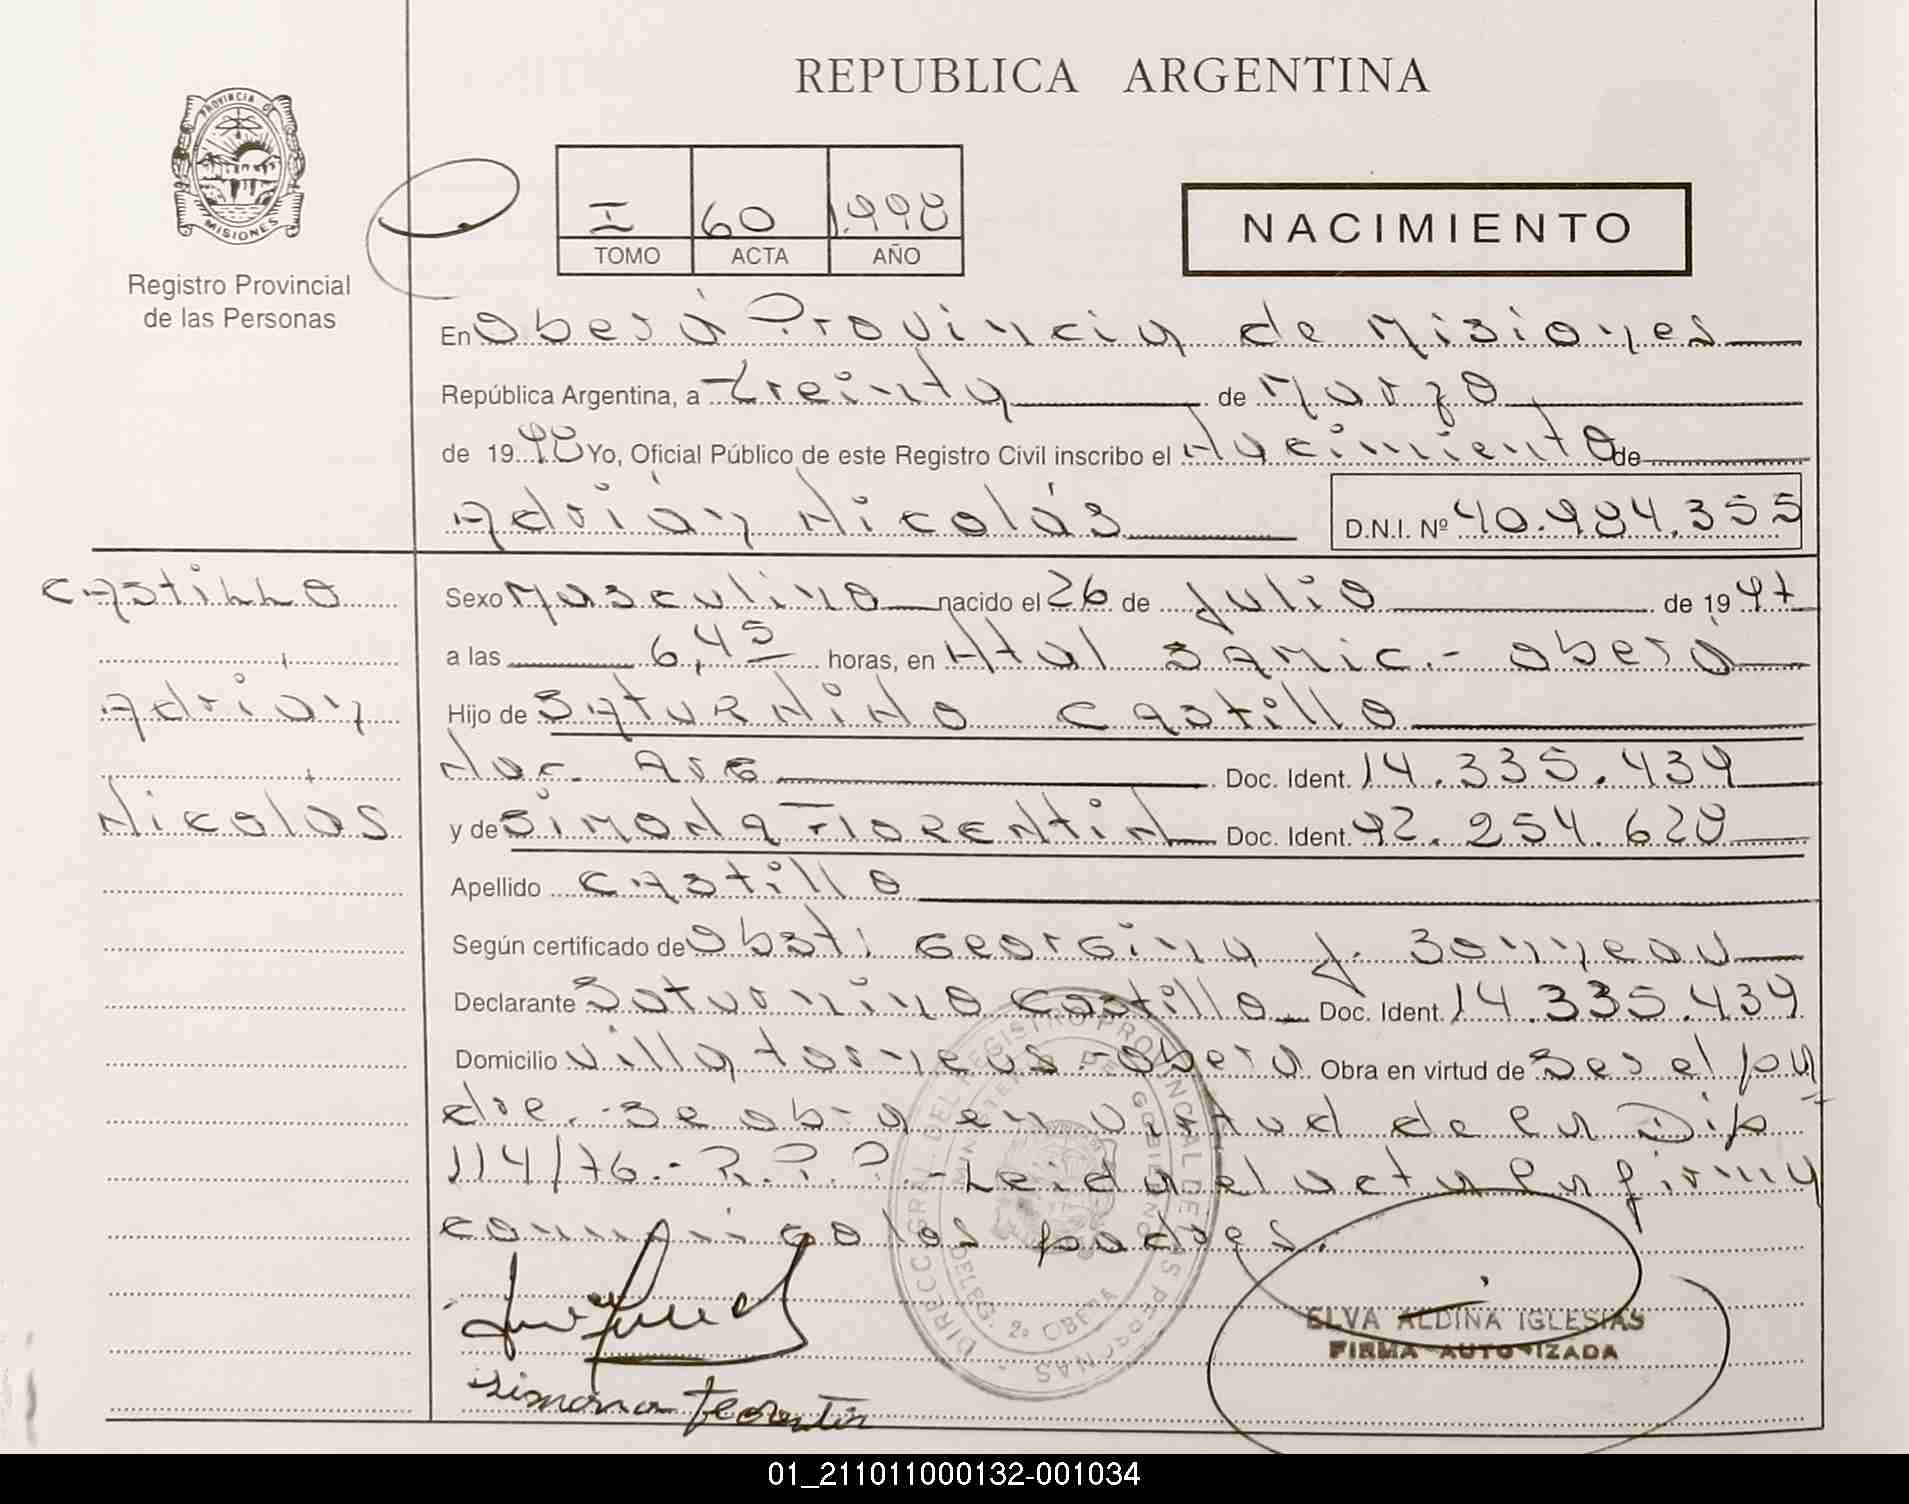 REPUBLICA ARGENTINA
PROVINCIA DE
MISIONES
Registro Provincial
de las Personas
I 60 1.998
TOMO ACTA AÑO
NACIMIENTO
En Oberá Provincia de Misiones
República Argentina, a treinta de Marzo
de 1998 Yo, Oficial Público de este Registro Civil inscribo el Nacimiento de
Adrián Nicolás D.N.I. Nº 40.984.355
Castillo
Adrián
Nicolás
Sexo Masculino nacido el 26 de Julio de 1997
a las 6,45 horas, en Htal SAMIC.- Oberá
Hijo de Saturnino Castillo
Nac. Arg Doc. Ident. 14.335.439
y de Simona Florentin Doc. Ident. 92.254.628
Apellido Castillo
Según certificado de Obst. Georgina J. Bonneau
Declarante Saturnino Castillo Doc. Ident. 14.335.439
Domicilio Villa Torneus - Oberá Obra en virtud de Ser el pa
dre.- Se obra en virtud de la Disp
114/76.- R.P.P.- Leida el acta la firma
conmigo los padres.
DIRECC. GRAL. DEL REGISTRO PROVINCIAL DE LAS PERSONAS
MINISTERIO DE GOBIERNO
DELEG. 2º OBERA
Simona Florentin
ELVA ALDINA IGLESIAS
FIRMA AUTORIZADA
01_211011000132-001034